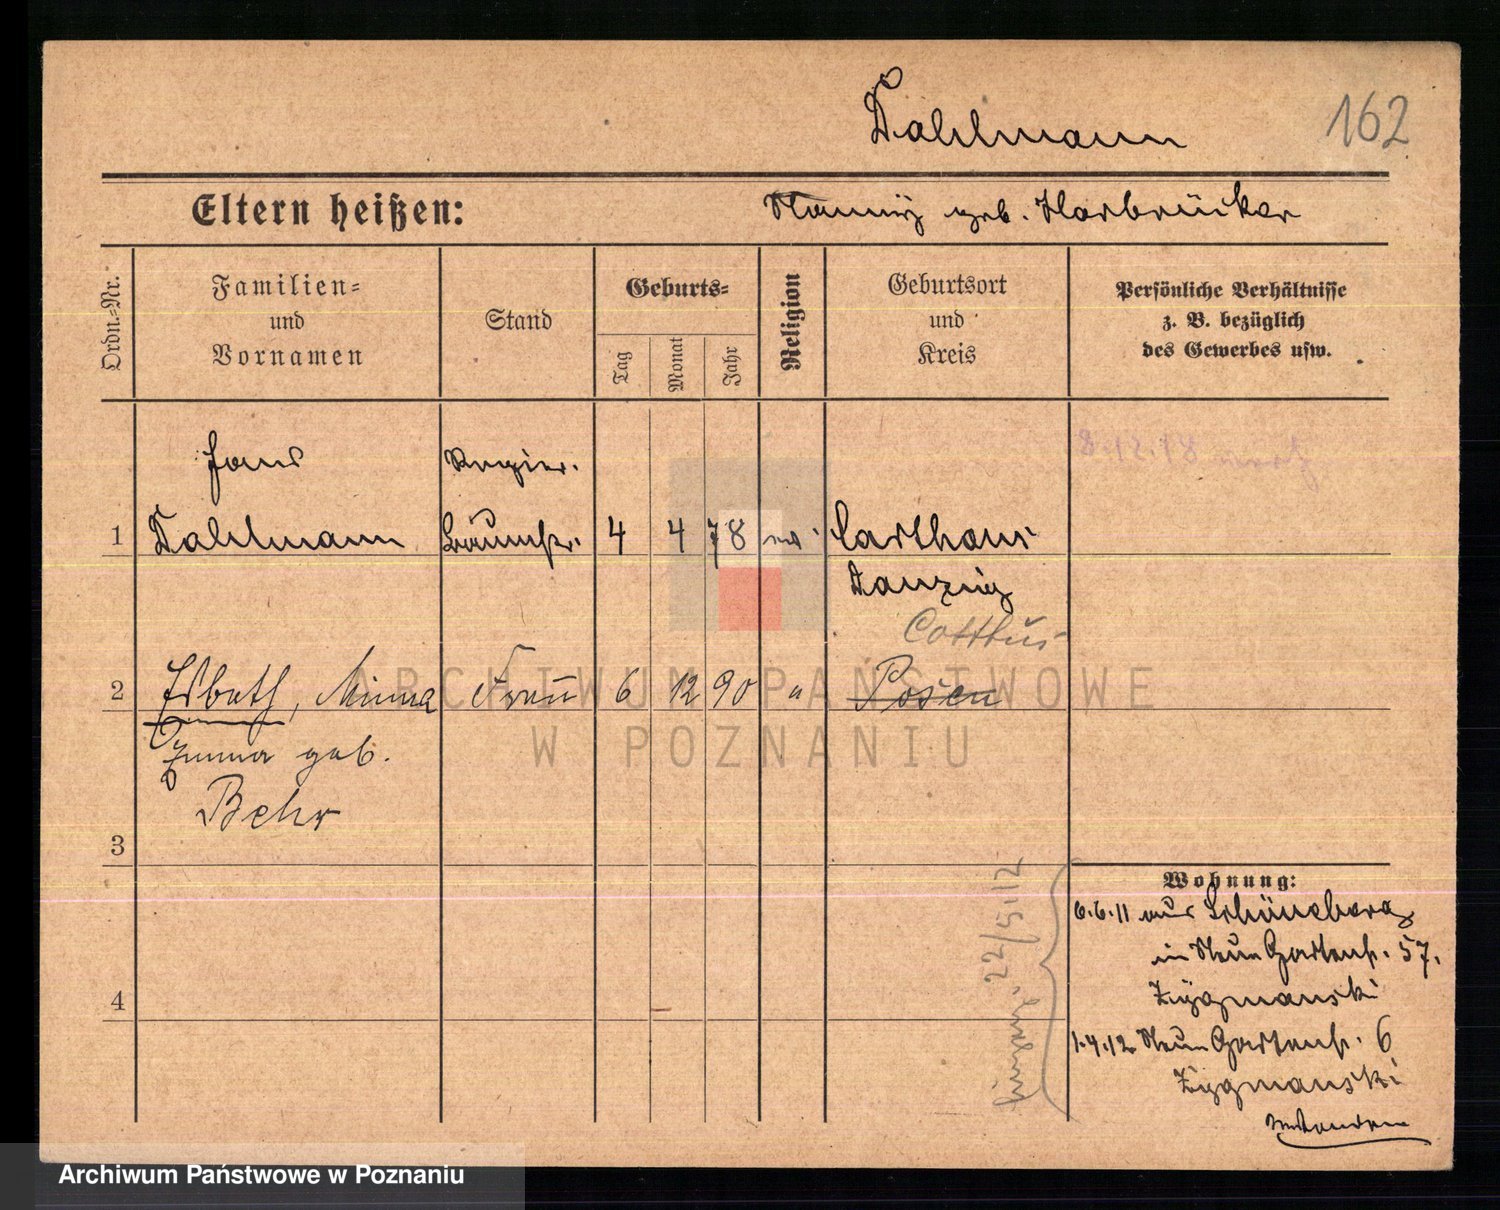 162
Dahlmann
Eltern heißen:
geb. Harbrücker
Ordn.-Nr.
Familien-
und
Vornamen
Stand
Geburts-
Tag
Monat
Jahr
Religion
Geburtsort
und
Kreis
Persönliche Verhältnisse
z. B. bezüglich
des Gewerbes usw.
8.12.18
Regier.
1 Dahlmann Baumstr. 4 4 78 ev. Carthaus
Danzig
Cottbus
2 Elsbeth, Minna Frau 6 12 90 " Posen
Emma geb.
Behr
3
4
Wohnung:
6.6.11 aus Schöneberg
in Neue Gartenstr. 57.
Zygmanski
1.4.12 Neue Gartenstr. 6
Zygmanski
22/5.12
ARCHIWUM PAŃSTWOWE
W POZNANIU
Archiwum Państwowe w Poznaniu